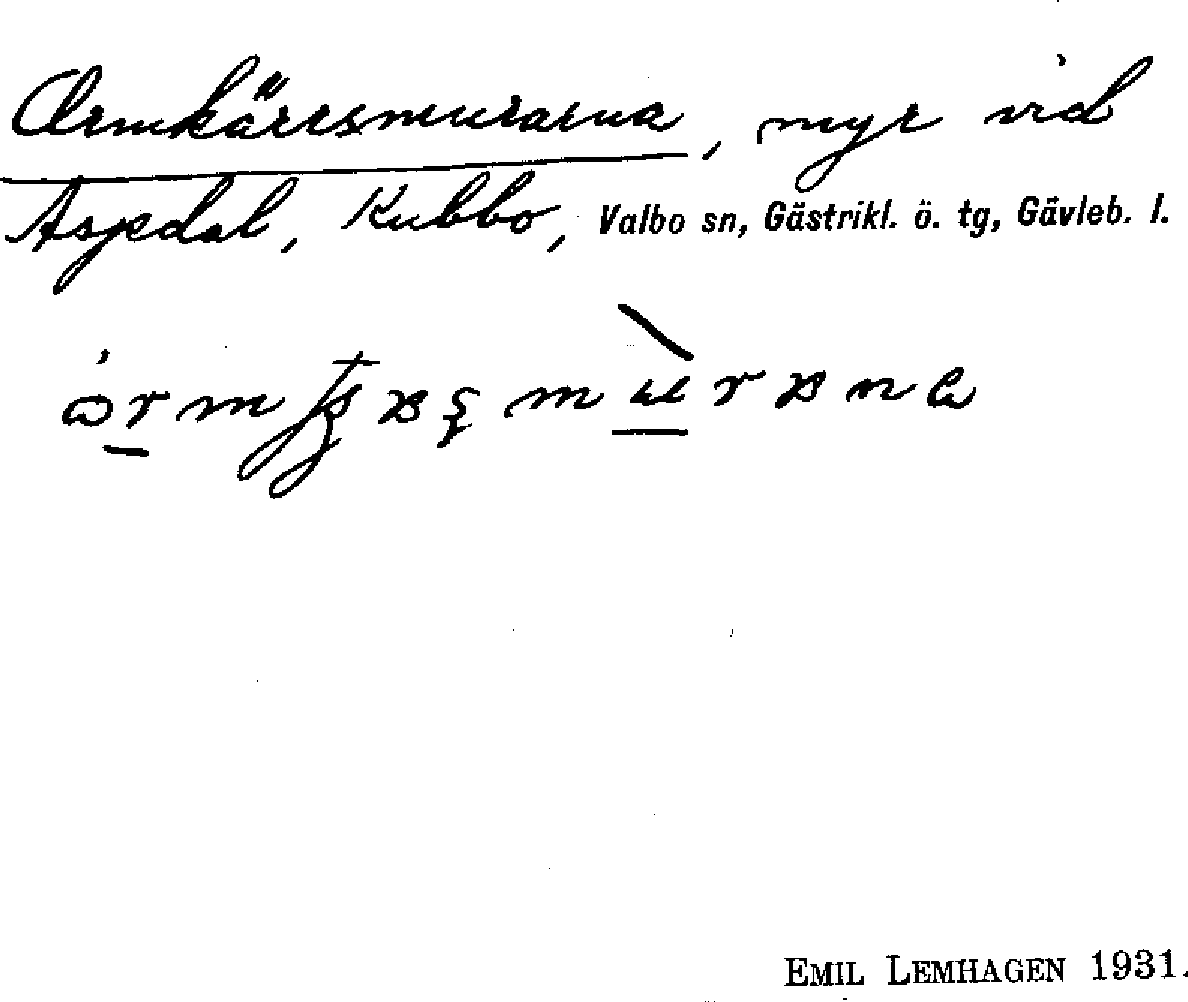 Ormkärrsmurarna, myr vid
Aspdal, Kubbo, Valbo sn, Gästrikl. ö. tg, Gävleb. l.
EMIL LEMHAGEN 1931.